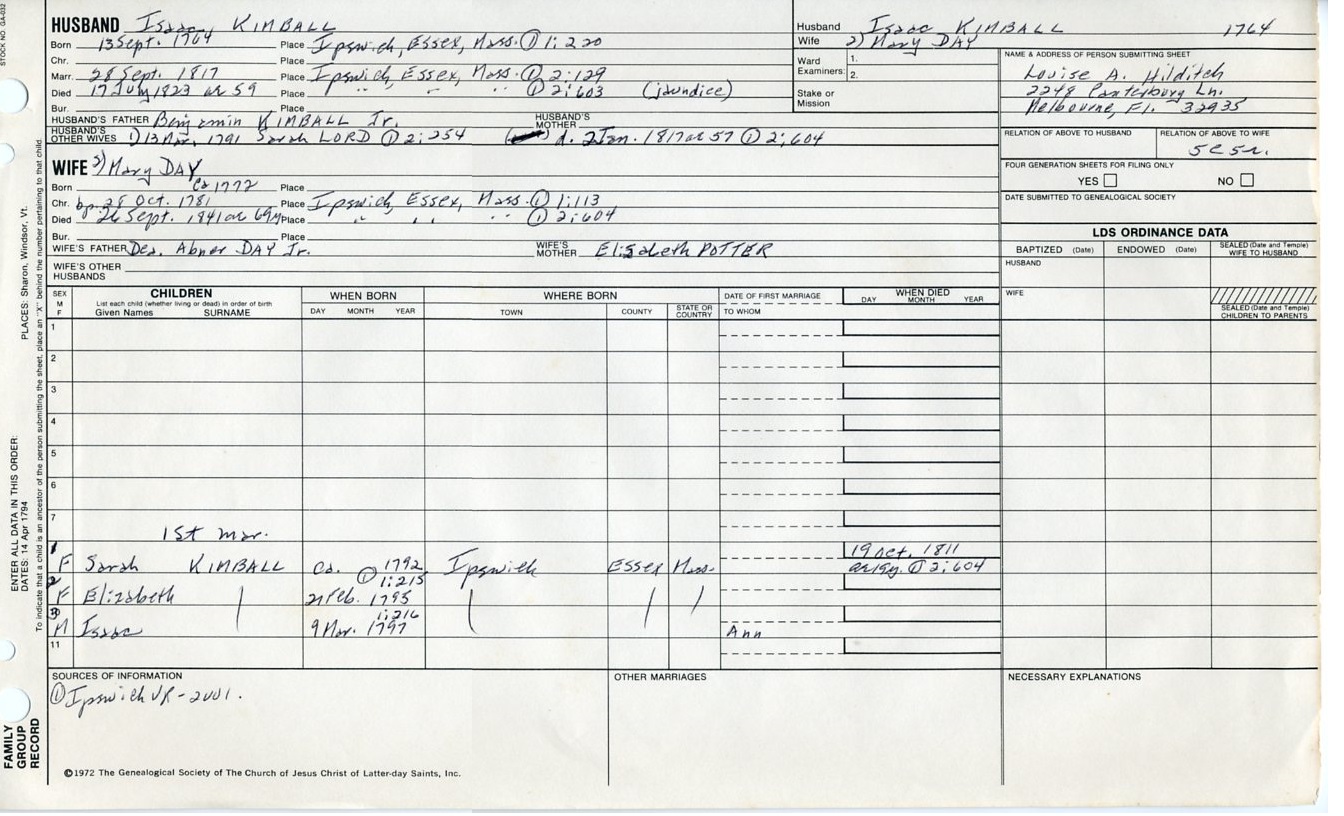 STOCK NO. GA-032
HUSBAND Isaac KIMBALL
Born 13 Sept. 1764 Place Ipswich, Essex, Mass. ① 1:220
Chr. Place
Marr. 28 Sept. 1817 Place Ipswich, Essex, Mass. ① 2:129
Died 17 July 1823 ae 59 Place " " " ① 2:603 (jaundice)
Bur. Place
HUSBAND'S FATHER Benjamin KIMBALL Jr. HUSBAND'S MOTHER
HUSBAND'S OTHER WIVES 1) 13 Mar. 1791 Sarah LORD ① 2:254 d. 2 Jan. 1817 ae 57 ① 2:604
WIFE 2) Mary DAY
Born Ca 1772 Place
Chr. bp. 28 Oct. 1781 Place Ipswich, Essex, Mass. ① 1:113
Died 26 Sept. 1841 ae 69y Place " " " ① 2:604
Bur. Place
WIFE'S FATHER Dea. Abner DAY Jr. WIFE'S MOTHER Elizabeth POTTER
WIFE'S OTHER HUSBANDS
Husband Isaac KIMBALL 1764
Wife 2) Mary DAY
Ward Examiners: 1.
2.
Stake or Mission
NAME & ADDRESS OF PERSON SUBMITTING SHEET
Louise A. Hilditch
2248 Canterbury Ln.
Melbourne, Fl. 32935
RELATION OF ABOVE TO HUSBAND RELATION OF ABOVE TO WIFE
5c5r.
FOUR GENERATION SHEETS FOR FILING ONLY
YES NO
DATE SUBMITTED TO GENEALOGICAL SOCIETY
LDS ORDINANCE DATA
BAPTIZED (Date) ENDOWED (Date) SEALED (Date and Temple) WIFE TO HUSBAND
HUSBAND
WIFE
SEALED (Date and Temple) CHILDREN TO PARENTS
SEX M F CHILDREN WHEN BORN WHERE BORN DATE OF FIRST MARRIAGE WHEN DIED
List each child (whether living or dead) in order of birth DAY MONTH YEAR
Given Names SURNAME DAY MONTH YEAR TOWN COUNTY STATE OR COUNTRY TO WHOM
1
2
3
4
5
6
7
1st mar.
1 F Sarah KIMBALL ca. 1792 Ipswich Essex Mass. 19 Oct. 1811 ae 19y. ① 2:604
2 F Elizabeth ① 1:215 21 Feb. 1795
3 M Isaac 1:216 9 Mar. 1797 Ann
11
SOURCES OF INFORMATION
① Ipswich VR - 2 vol.
OTHER MARRIAGES
NECESSARY EXPLANATIONS
©1972 The Genealogical Society of The Church of Jesus Christ of Latter-day Saints, Inc.
FAMILY GROUP RECORD
ENTER ALL DATA IN THIS ORDER:
DATES: 14 Apr 1794 PLACES: Sharon, Windsor, Vt.
To indicate that a child is an ancestor of the person submitting the sheet, place an "X" behind the number pertaining to that child.